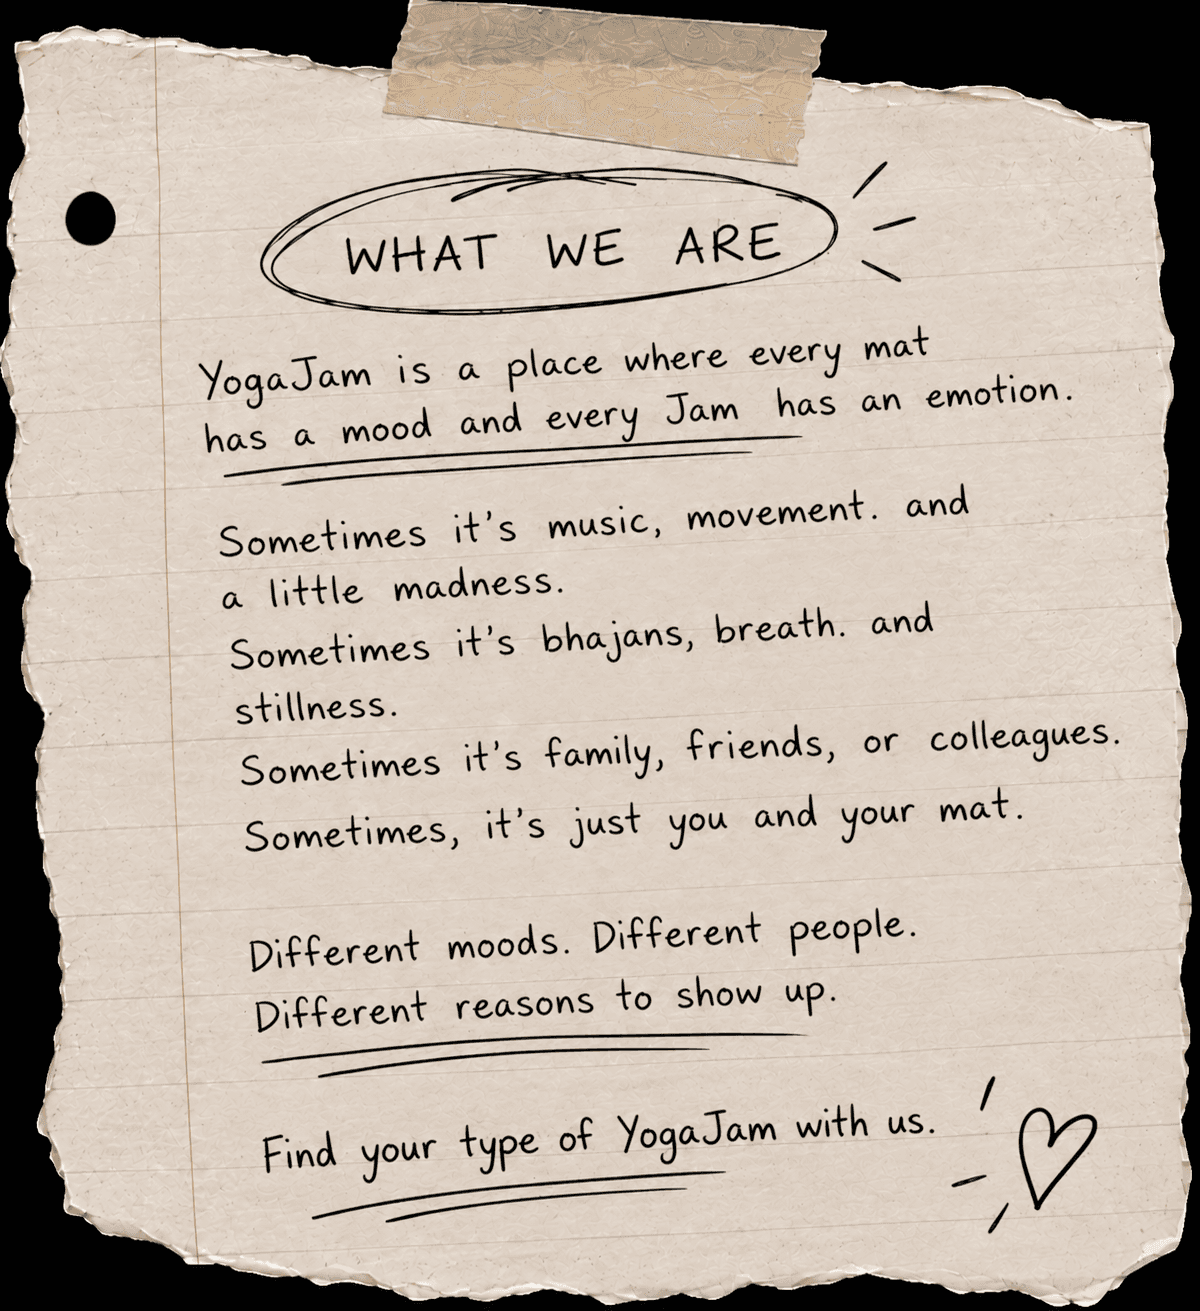 WHAT WE ARE
YogaJam is a place where every mat
has a mood and every Jam has an emotion.
Sometimes it's music, movement. and
a little madness.
Sometimes it's bhajans, breath. and
stillness.
Sometimes it's family, friends, or colleagues.
Sometimes, it's just you and your mat.
Different moods. Different people.
Different reasons to show up.
Find your type of YogaJam with us.